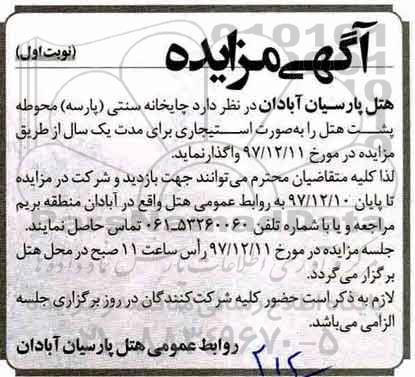 آگهی مزایده
(نوبت اول)
هتل پارسیان آبادان در نظر دارد چایخانه سنتی (پارسه) محوطه
پشت هتل را به‌صورت استیجاری برای مدت یک سال از طریق
مزایده در مورخ ۹۷/۱۲/۱۱ واگذار نماید.
لذا کلیه متقاضیان محترم می‌توانند جهت بازدید و شرکت در مزایده
تا پایان ۹۷/۱۲/۱۰ به روابط عمومی هتل واقع در آبادان منطقه بریم
مراجعه و یا با شماره تلفن ۵۳۲۶۰۰۶۰-۰۶۱ تماس حاصل نمایند.
جلسه مزایده در مورخ ۹۷/۱۲/۱۱ رأس ساعت ۱۱ صبح در محل هتل
برگزار می‌گردد.
لازم به ذکر است حضور کلیه شرکت‌کنندگان در روز برگزاری جلسه
الزامی می‌باشد.
روابط عمومی هتل پارسیان آبادان